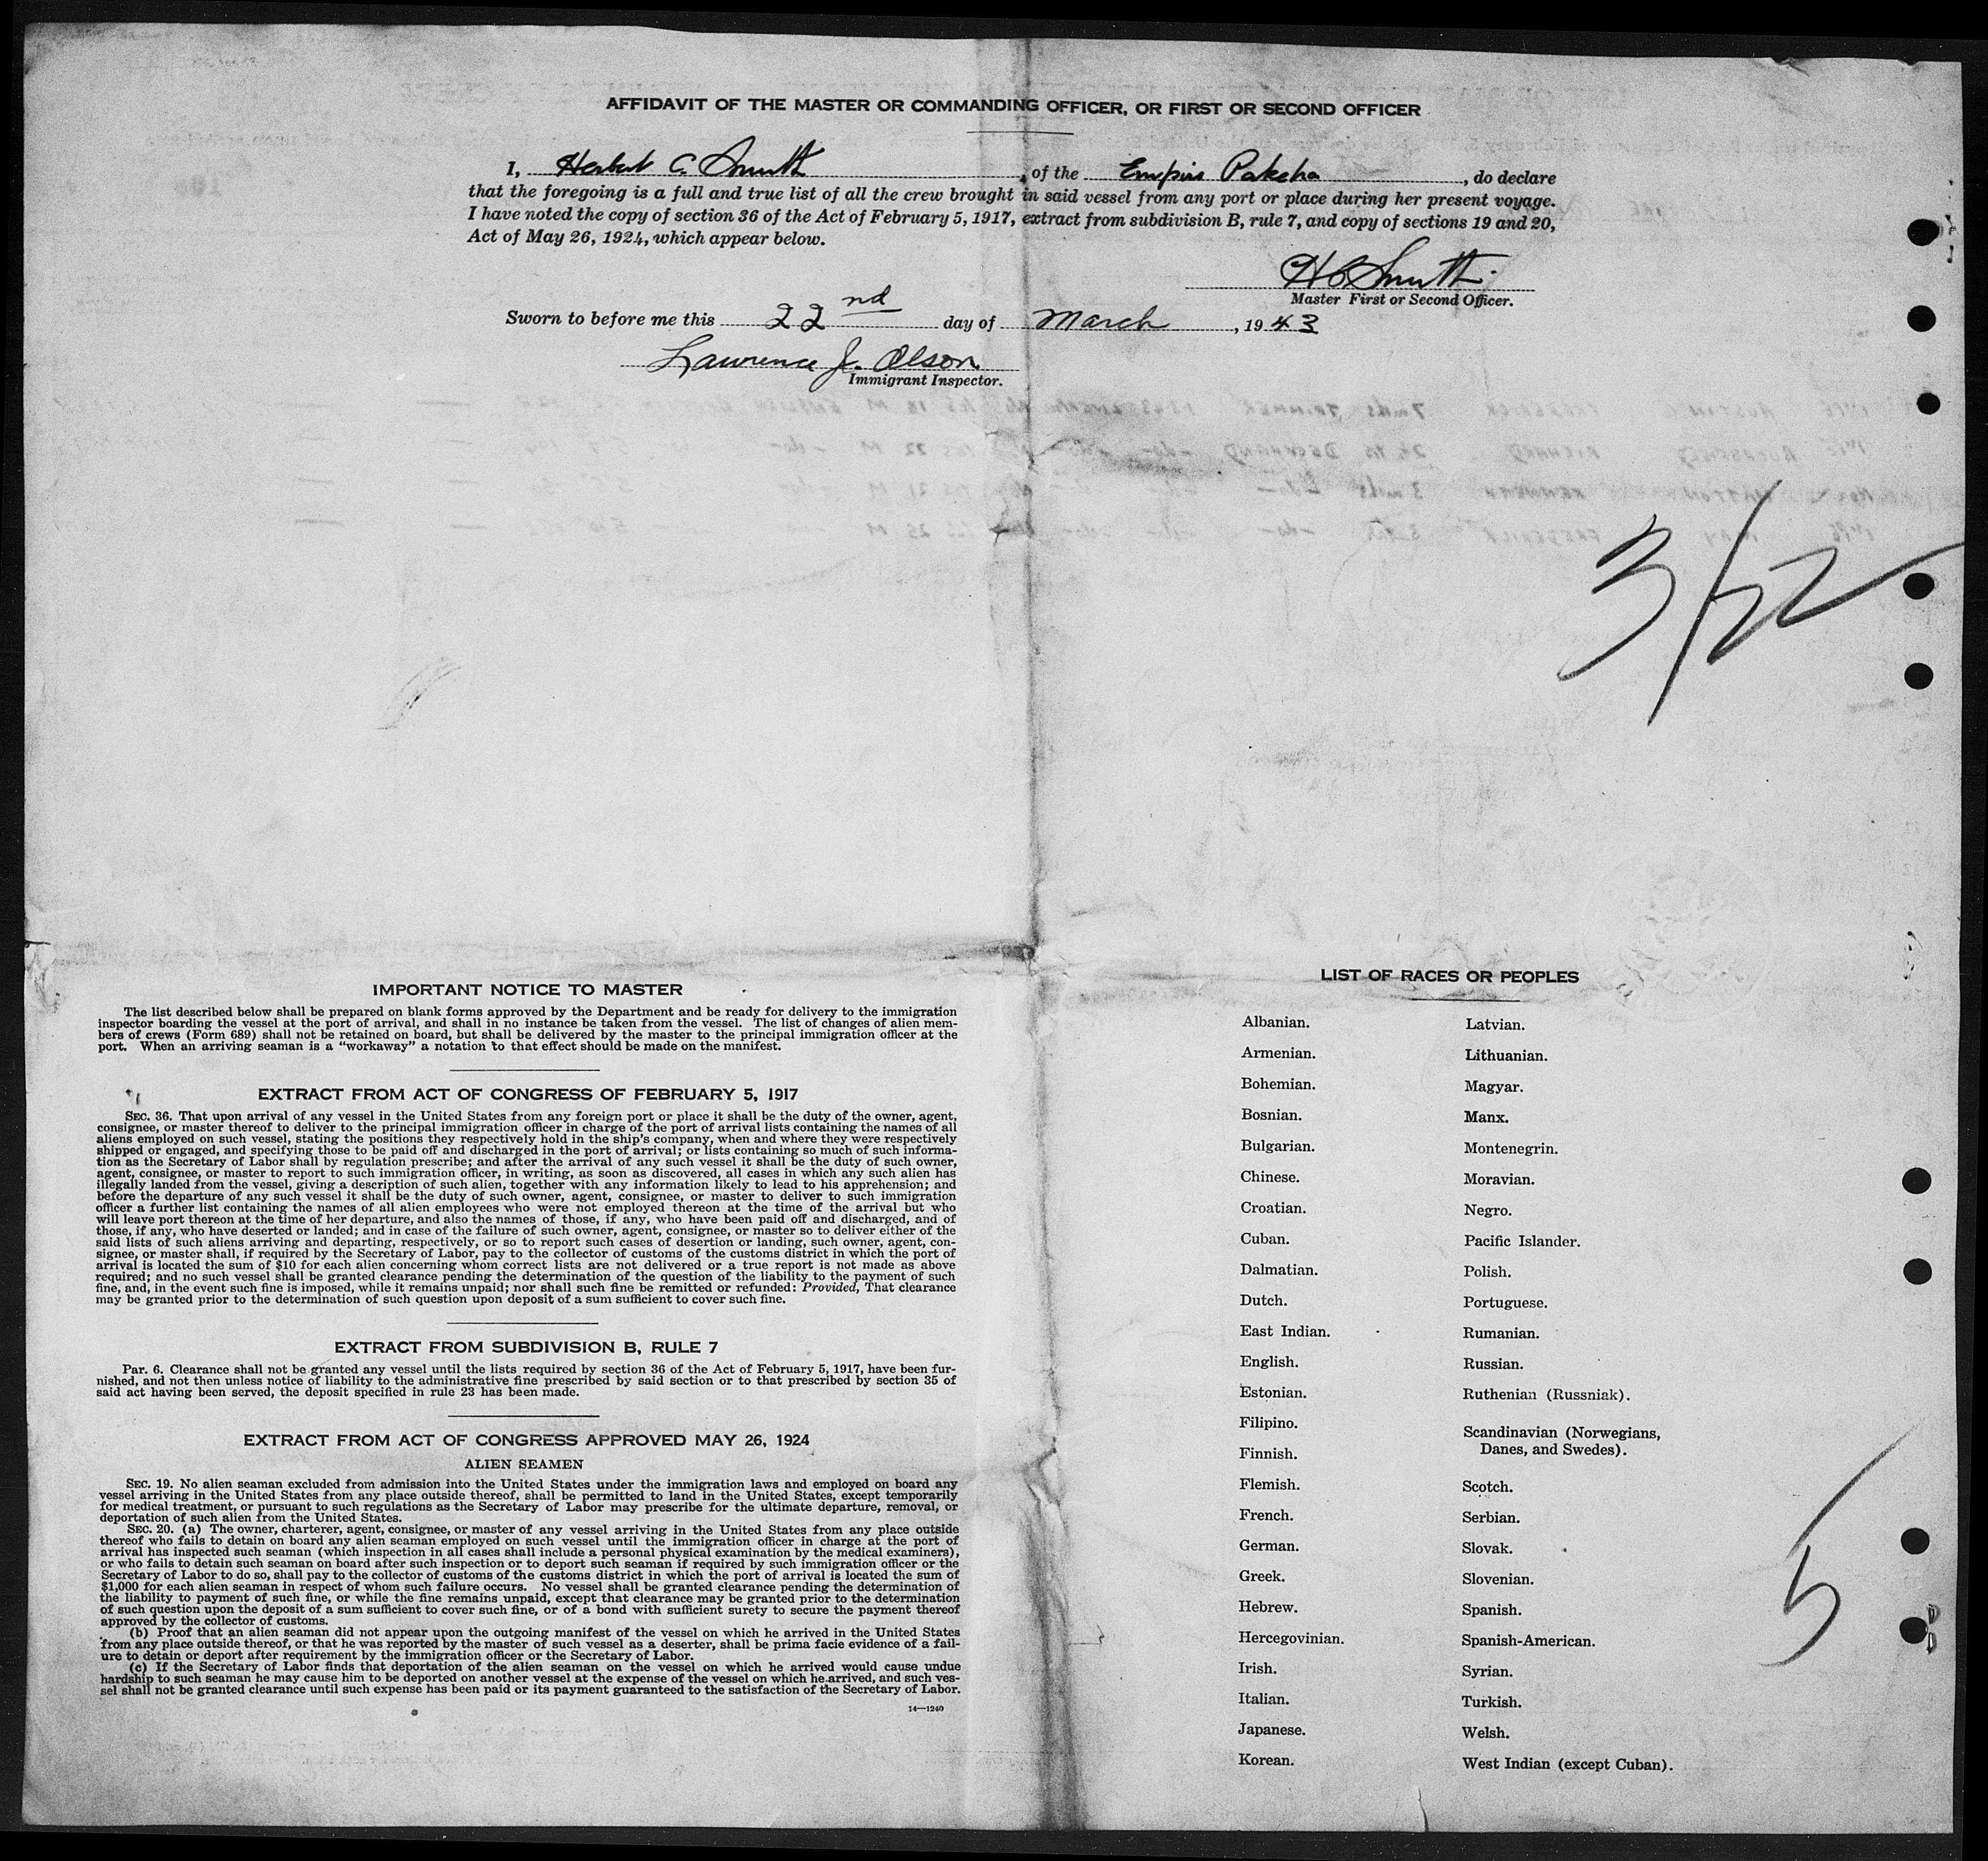 AFFIDAVIT OF THE MASTER OR COMMANDING OFFICER, OR FIRST OR SECOND OFFICER
I, Herbert C. Smith, of the Empire Pakeha, do declare
that the foregoing is a full and true list of all the crew brought in said vessel from any port or place during her present voyage.
I have noted the copy of section 36 of the Act of February 5, 1917, extract from subdivision B, rule 7, and copy of sections 19 and 20,
Act of May 26, 1924, which appear below.
H C Smith.
Master First or Second Officer.
Sworn to before me this 22nd day of March, 1943
Lawrence J. Olson
Immigrant Inspector.
3/22
IMPORTANT NOTICE TO MASTER
The list described below shall be prepared on blank forms approved by the Department and be ready for delivery to the immigration
inspector boarding the vessel at the port of arrival, and shall in no instance be taken from the vessel. The list of changes of alien mem-
bers of crews (Form 689) shall not be retained on board, but shall be delivered by the master to the principal immigration officer at the
port. When an arriving seaman is a "workaway" a notation to that effect should be made on the manifest.
EXTRACT FROM ACT OF CONGRESS OF FEBRUARY 5, 1917
SEC. 36. That upon arrival of any vessel in the United States from any foreign port or place it shall be the duty of the owner, agent,
consignee, or master thereof to deliver to the principal immigration officer in charge of the port of arrival lists containing the names of all
aliens employed on such vessel, stating the positions they respectively hold in the ship's company, when and where they were respectively
shipped or engaged, and specifying those to be paid off and discharged in the port of arrival; or lists containing so much of such informa-
tion as the Secretary of Labor shall by regulation prescribe; and after the arrival of any such vessel it shall be the duty of such owner,
agent, consignee, or master to report to such immigration officer, in writing, as soon as discovered, all cases in which any such alien has
illegally landed from the vessel, giving a description of such alien, together with any information likely to lead to his apprehension; and
before the departure of any such vessel it shall be the duty of such owner, agent, consignee, or master to deliver to such immigration
officer a further list containing the names of all alien employees who were not employed thereon at the time of the arrival but who
will leave port thereon at the time of her departure, and also the names of those, if any, who have been paid off and discharged, and of
those, if any, who have deserted or landed; and in case of the failure of such owner, agent, consignee, or master so to deliver either of the
said lists of such aliens arriving and departing, respectively, or so to report such cases of desertion or landing, such owner, agent, con-
signee, or master shall, if required by the Secretary of Labor, pay to the collector of customs of the customs district in which the port of
arrival is located the sum of $10 for each alien concerning whom correct lists are not delivered or a true report is not made as above
required; and no such vessel shall be granted clearance pending the determination of the question of the liability to the payment of such
fine, and, in the event such fine is imposed, while it remains unpaid; nor shall such fine be remitted or refunded: Provided, That clearance
may be granted prior to the determination of such question upon deposit of a sum sufficient to cover such fine.
EXTRACT FROM SUBDIVISION B, RULE 7
Par. 6. Clearance shall not be granted any vessel until the lists required by section 36 of the Act of February 5, 1917, have been fur-
nished, and not then unless notice of liability to the administrative fine prescribed by said section or to that prescribed by section 35 of
said act having been served, the deposit specified in rule 23 has been made.
EXTRACT FROM ACT OF CONGRESS APPROVED MAY 26, 1924
ALIEN SEAMEN
SEC. 19. No alien seaman excluded from admission into the United States under the immigration laws and employed on board any
vessel arriving in the United States from any place outside thereof, shall be permitted to land in the United States, except temporarily
for medical treatment, or pursuant to such regulations as the Secretary of Labor may prescribe for the ultimate departure, removal, or
deportation of such alien from the United States.
SEC. 20. (a) The owner, charterer, agent, consignee, or master of any vessel arriving in the United States from any place outside
thereof who fails to detain on board any alien seaman employed on such vessel until the immigration officer in charge at the port of
arrival has inspected such seaman (which inspection in all cases shall include a personal physical examination by the medical examiners),
or who fails to detain such seaman on board after such inspection or to deport such seaman if required by such immigration officer or the
Secretary of Labor to do so, shall pay to the collector of customs of the customs district in which the port of arrival is located the sum of
$1,000 for each alien seaman in respect of whom such failure occurs. No vessel shall be granted clearance pending the determination of
the liability to payment of such fine, or while the fine remains unpaid, except that clearance may be granted prior to the determination
of such question upon the deposit of a sum sufficient to cover such fine, or of a bond with sufficient surety to secure the payment thereof
approved by the collector of customs.
(b) Proof that an alien seaman did not appear upon the outgoing manifest of the vessel on which he arrived in the United States
from any place outside thereof, or that he was reported by the master of such vessel as a deserter, shall be prima facie evidence of a fail-
ure to detain or deport after requirement by the immigration officer or the Secretary of Labor.
(c) If the Secretary of Labor finds that deportation of the alien seaman on the vessel on which he arrived would cause undue
hardship to such seaman he may cause him to be deported on another vessel at the expense of the vessel on which he arrived, and such ves-
sel shall not be granted clearance until such expense has been paid or its payment guaranteed to the satisfaction of the Secretary of Labor.
14—1240
LIST OF RACES OR PEOPLES
Albanian.
Armenian.
Bohemian.
Bosnian.
Bulgarian.
Chinese.
Croatian.
Cuban.
Dalmatian.
Dutch.
East Indian.
English.
Estonian.
Filipino.
Finnish.
Flemish.
French.
German.
Greek.
Hebrew.
Hercegovinian.
Irish.
Italian.
Japanese.
Korean.
Latvian.
Lithuanian.
Magyar.
Manx.
Montenegrin.
Moravian.
Negro.
Pacific Islander.
Polish.
Portuguese.
Rumanian.
Russian.
Ruthenian (Russniak).
Scandinavian (Norwegians,
Danes, and Swedes).
Scotch.
Serbian.
Slovak.
Slovenian.
Spanish.
Spanish-American.
Syrian.
Turkish.
Welsh.
West Indian (except Cuban).
5